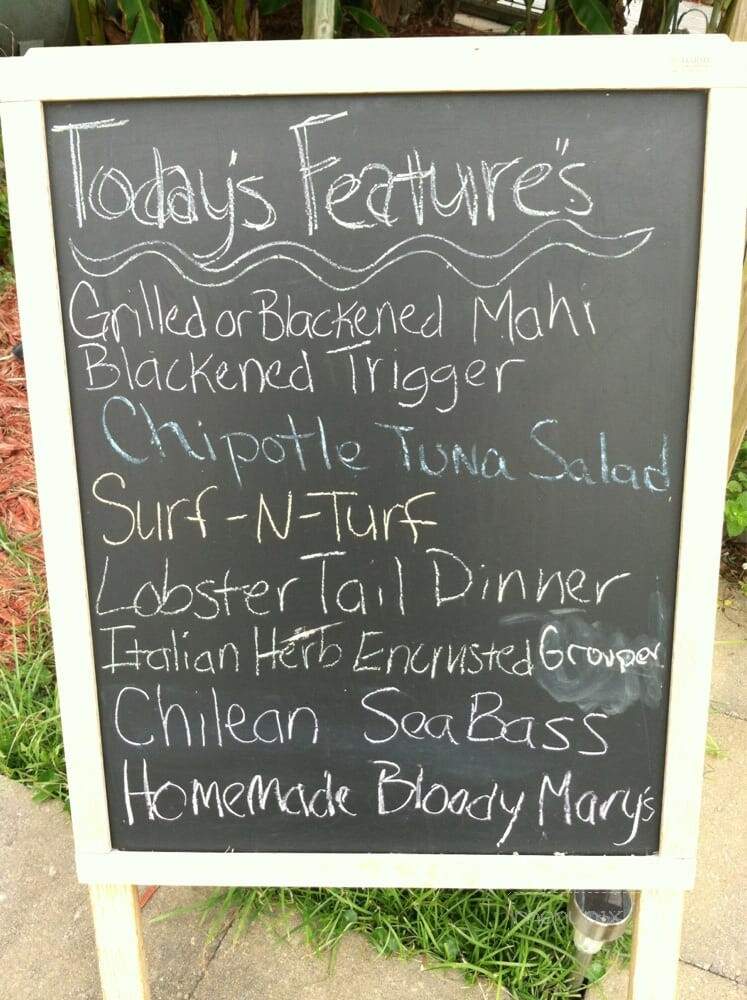 Today's Feature's
Grilled or Blackened Mahi
Blackened Trigger
Chipotle Tuna Salad
Surf-N-Turf
Lobster Tail Dinner
Italian Herb Encrusted Grouper
Chilean Sea Bass
Homemade Bloody Mary's